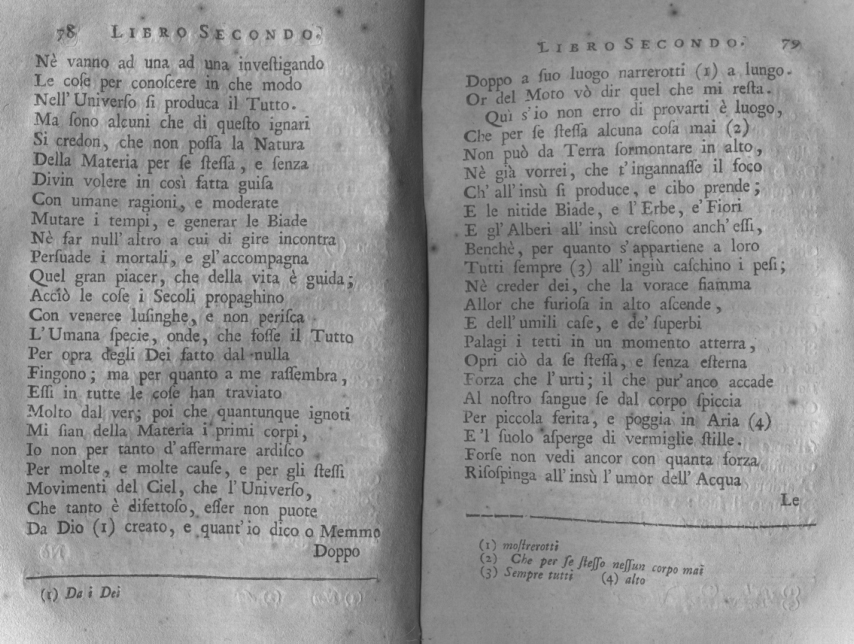 78 LIBRO SECONDO.
Nè vanno ad una ad una inveſtigando
Le coſe per conoſcere in che modo
Nell' Univerſo ſi produca il Tutto.
Ma ſono alcuni che di queſto ignari
Si credon, che non poſſa la Natura
Della Materia per ſe ſteſſa, e ſenza
Divin volere in così fatta guiſa
Con umane ragioni, e moderate
Mutare i tempi, e generar le Biade
Nè far null' altro a cui di gire incontra
Perſuade i mortali, e gl' accompagna
Quel gran piacer, che della vita è guida;
Acciò le coſe i Secoli propaghino
Con veneree luſinghe, e non periſca
L' Umana ſpecie, onde, che foſſe il Tutto
Per opra degli Dei fatto dal nulla
Fingono; ma per quanto a me raſſembra,
Eſſi in tutte le coſe han traviato
Molto dal ver; poi che quantunque ignoti
Mi ſian della Materia i primi corpi,
Io non per tanto d' affermare ardiſco
Per molte, e molte cauſe, e per gli ſteſſi
Movimenti del Ciel, che l' Univerſo,
Che tanto è difettoſo, eſſer non puote
Da Dio (1) creato, e quant' io dico o Memmo
Doppo
(1) Da i Dei
LIBRO SECONDO. 79
Doppo a ſuo luogo narrerotti (1) a lungo.
Or del Moto vò dir quel che mi reſta.
Qui s' io non erro di provarti è luogo,
Che per ſe ſteſſa alcuna coſa mai (2)
Non può da Terra ſormontare in alto,
Nè già vorrei, che t' ingannaſſe il foco
Ch' all' insù ſi produce, e cibo prende;
E le nitide Biade, e l' Erbe, e' Fiori
E gl' Alberi all' insù creſcono anch' eſſi,
Benchè, per quanto s' appartiene a loro
Tutti ſempre (3) all' ingiù caſchino i peſi;
Nè creder dei, che la vorace fiamma
Allor che furioſa in alto aſcende,
E dell' umili caſe, e de' ſuperbi
Palagi i tetti in un momento atterra,
Opri ciò da ſe ſteſſa, e ſenza eſterna
Forza che l' urti; il che pur' anco accade
Al noſtro ſangue ſe dal corpo ſpiccia
Per piccola ferita, e poggia in Aria (4)
E 'l ſuolo aſperge di vermiglie ſtille.
Forſe non vedi ancor con quanta forza
Riſoſpinga all' insù l' umor dell' Acqua
Le
(1) moſtrerotti
(2) Che per ſe ſteſſo neſſun corpo mai
(3) Sempre tutti (4) alto